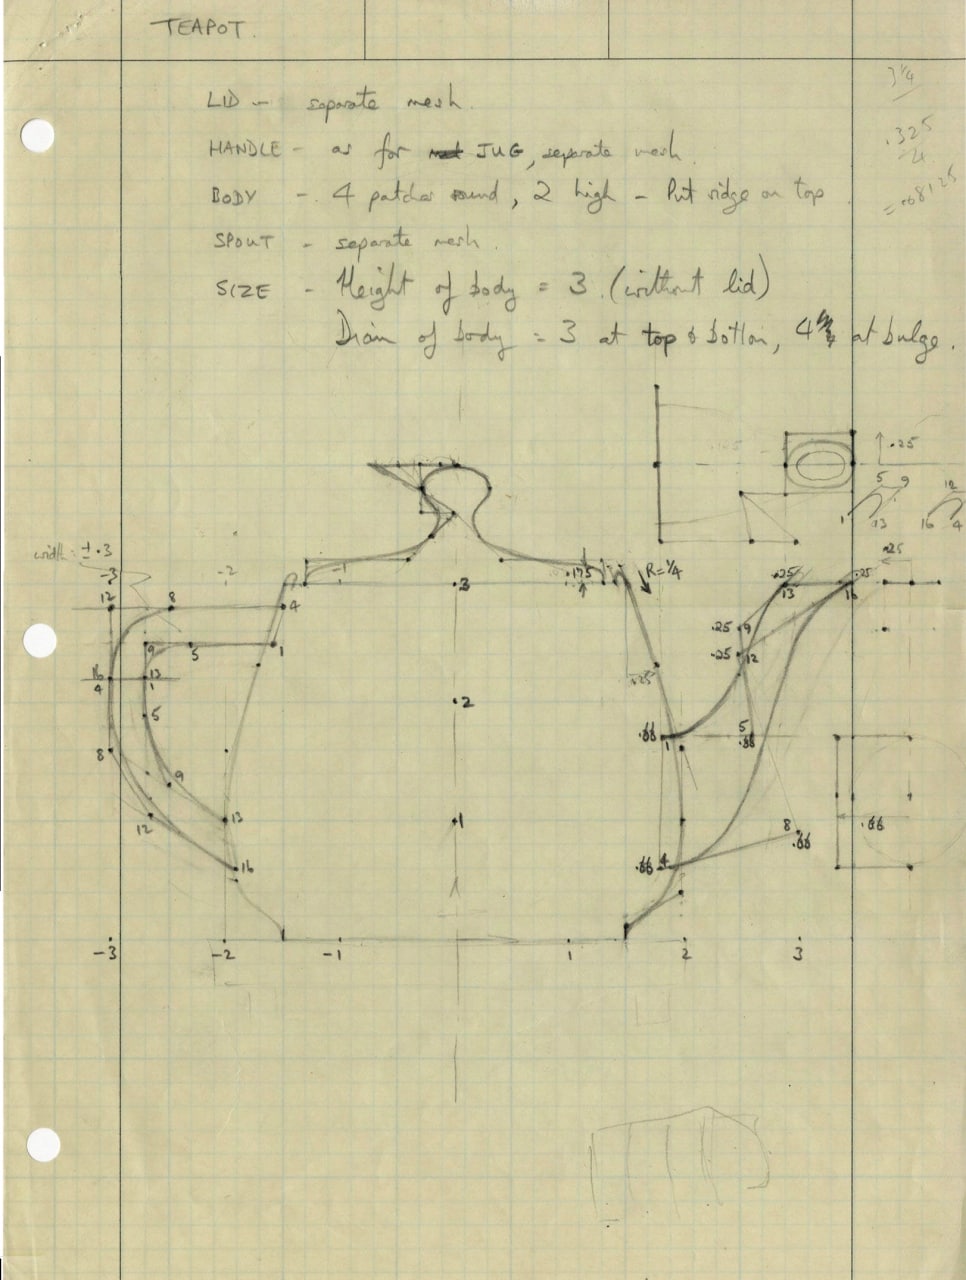 TEAPOT.
LID - separate mesh.
HANDLE - as for JUG, separate mesh.
BODY - 4 patches round, 2 high - Put ridge on top
SPOUT - separate mesh.
SIZE - Height of body = 3 (without lid)
Diam of body = 3 at top & bottom, 4 at bulge.
3 1/4
.325
= .08125
.25
5 9
12
1 13
16 4
width = ±.3
-3 -2 -1 .3 .175 R=1/4 .25 .25 .25
12 8 4 13 16
.25 9
9 5 1 .25 12
16 13
4 1 .25
5 2
.66 1 5 .66
8
9
12 13 1 8 .66 .66
16 .66 4
-3 -2 -1 1 2 3